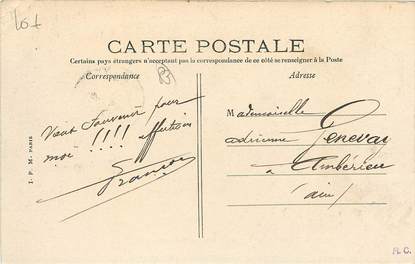 lot
CARTE POSTALE
Certains pays étrangers n'acceptant pas la correspondance de ce côté se renseigner à la Poste
Correspondance
Adresse
85
Vaut Souvenir pour
moi !!!! affection
Mademoiselle
adrienne Genevay
a Ambérieu
ain
I. P. M. PARIS
A.C.